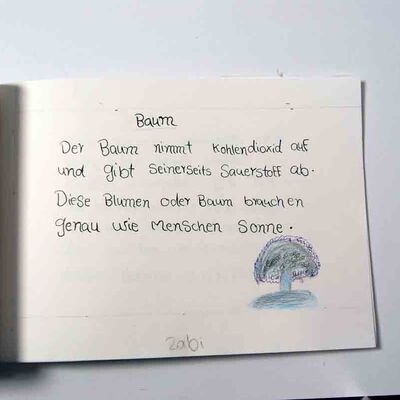 Baum
Der Baum nimmt Kohlendioxid auf
und gibt seinerseits Sauerstoff ab.
Diese Blumen oder Baum brauchen
genau wie Menschen Sonne.
zabi